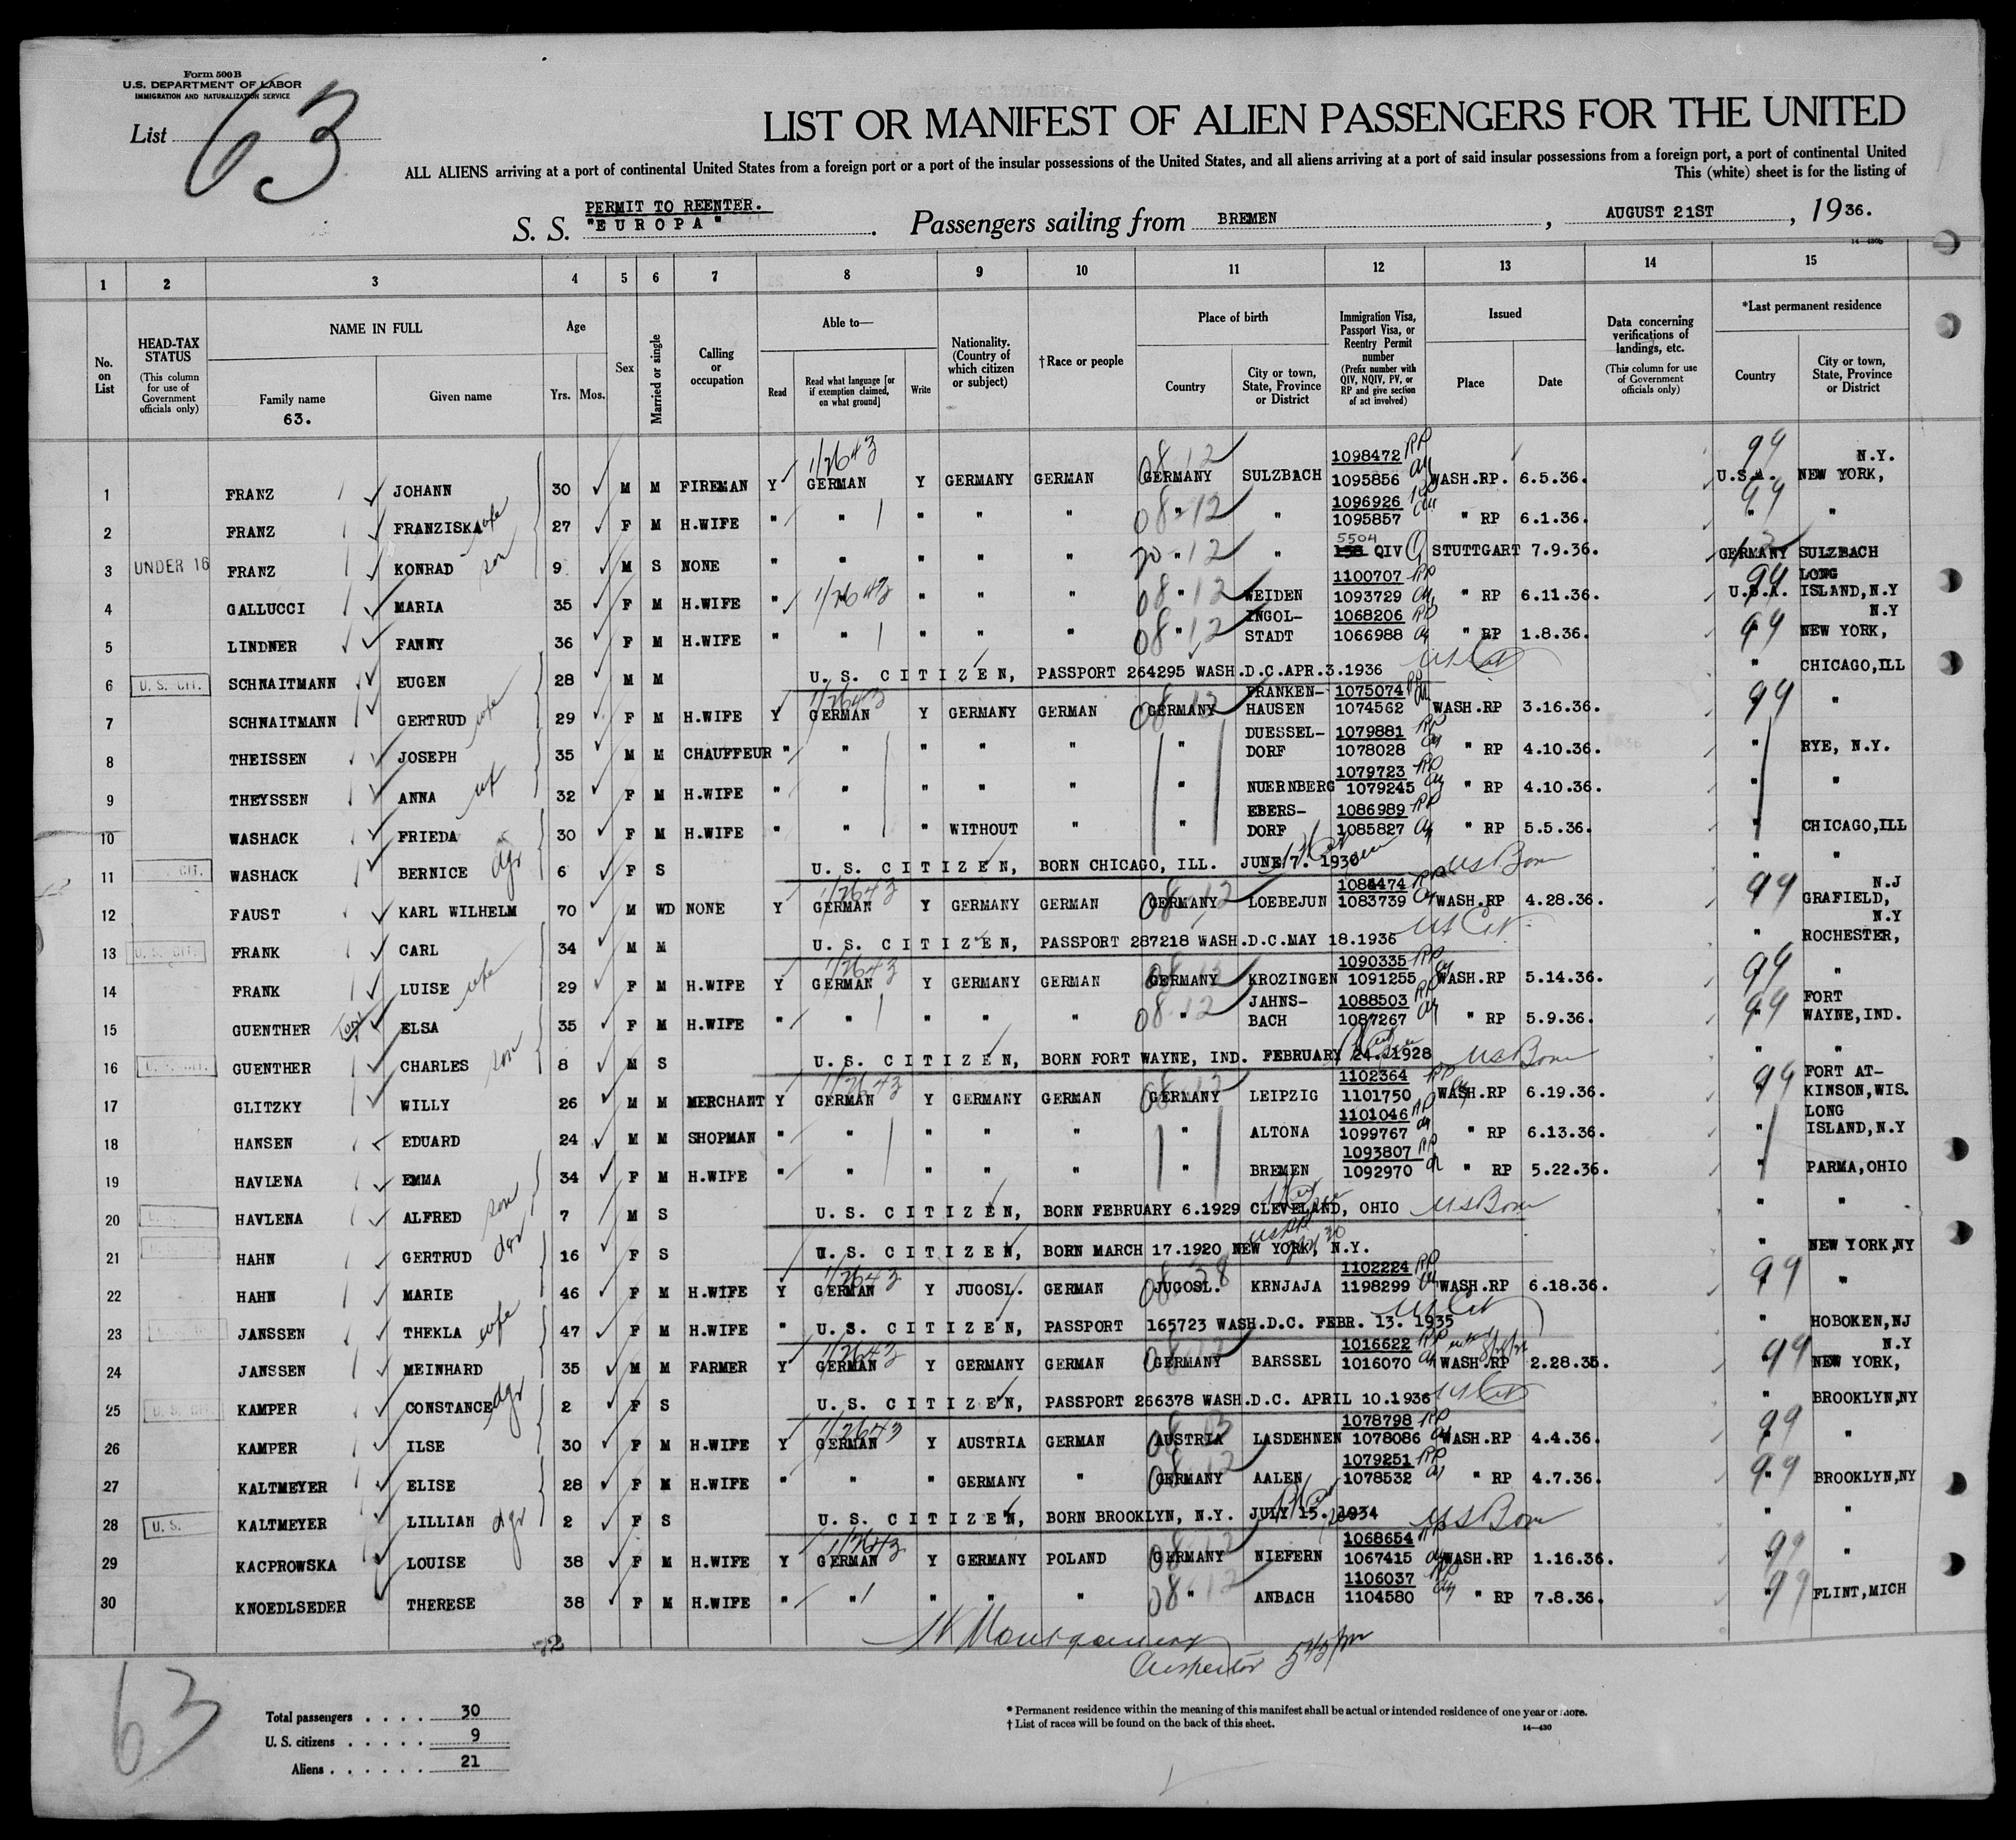 Form 500 B
U.S. DEPARTMENT OF LABOR
IMMIGRATION AND NATURALIZATION SERVICE
List 63
LIST OR MANIFEST OF ALIEN PASSENGERS FOR THE UNITED
ALL ALIENS arriving at a port of continental United States from a foreign port or a port of the insular possessions of the United States, and all aliens arriving at a port of said insular possessions from a foreign port, a port of continental United
This (white) sheet is for the listing of
PERMIT TO REENTER.
S. S. "EUROPA". Passengers sailing from BREMEN, AUGUST 21ST, 1936.
14—430b
1 2 3 4 5 6 7 8 9 10 11 12 13 14 15
No. on List
HEAD-TAX STATUS (This column for use of Government officials only)
NAME IN FULL
Family name
63.
Given name
Age
Yrs. Mos.
Sex
Married or single
Calling or occupation
Able to—
Read
Read what language [or if exemption claimed, on what ground]
Write
Nationality. (Country of which citizen or subject)
†Race or people
Place of birth
Country
City or town, State, Province or District
Immigration Visa, Passport Visa, or Reentry Permit number (Prefix number with QIV, NQIV, PV, or RP and give section of act involved)
Issued
Place
Date
Data concerning verifications of landings, etc. (This column for use of Government officials only)
*Last permanent residence
Country
City or town, State, Province or District
1 FRANZ JOHANN 30 M M FIREMAN Y GERMAN Y GERMANY GERMAN GERMANY SULZBACH 1098472 RP 1095856 WASH.RP. 6.5.36. U.S.A. NEW YORK, N.Y.
2 FRANZ FRANZISKA wfe 27 F M H.WIFE " " " " " " " 1096926 1095857 " RP 6.1.36. " "
3 UNDER 16 FRANZ KONRAD son 9 M S NONE " " " " " " " 5504 QIV STUTTGART 7.9.36. GERMANY SULZBACH
4 GALLUCCI MARIA 35 F M H.WIFE " " " " " " WEIDEN 1100707 RP 1093729 " RP 6.11.36. U.S.A. LONG ISLAND,N.Y
5 LINDNER FANNY 36 F M H.WIFE " " " " " " INGOL-STADT 1068206 RP 1066988 " RP 1.8.36. " NEW YORK, N.Y
6 U. S. CIT. SCHNAITMANN EUGEN 28 M M U. S. CITIZEN, PASSPORT 264295 WASH.D.C.APR.3.1936 US Cit " CHICAGO,ILL
7 SCHNAITMANN GERTRUD wfe 29 F M H.WIFE Y GERMAN Y GERMANY GERMAN GERMANY FRANKEN-HAUSEN 1075074 RP 1074562 WASH.RP 3.16.36. "
8 THEISSEN JOSEPH 35 M M CHAUFFEUR " " " " " " DUESSEL-DORF 1079881 RP 1078028 " RP 4.10.36. " RYE, N.Y.
9 THEYSSEN ANNA wf 32 F M H.WIFE " " " " " " NUERNBERG 1079723 RP 1079245 " RP 4.10.36. " "
10 WASHACK FRIEDA 30 F M H.WIFE " " " WITHOUT " " EBERS-DORF 1086989 RP 1085827 " RP 5.5.36. " CHICAGO,ILL
11 CIT. WASHACK BERNICE dgr 6 F S U. S. CITIZEN, BORN CHICAGO, ILL. JUNE 7. 1930 US Born " "
12 FAUST KARL WILHELM 70 M WD NONE Y GERMAN Y GERMANY GERMAN GERMANY LOEBEJUN 1084474 RP 1083739 WASH.RP 4.28.36. GRAFIELD, N.J
13 U. S. CIT. FRANK CARL 34 M M U. S. CITIZEN, PASSPORT 287218 WASH.D.C.MAY 18.1936 US Cit " ROCHESTER, N.Y
14 FRANK LUISE wfe 29 F M H.WIFE Y GERMAN Y GERMANY GERMAN GERMANY KROZINGEN 1090335 RP 1091255 WASH.RP 5.14.36. "
15 GUENTHER ELSA 35 F M H.WIFE " " " " " " JAHNS-BACH 1088503 RP 1087267 " RP 5.9.36. " FORT WAYNE,IND.
16 U. S. CIT. GUENTHER CHARLES son 8 M S U. S. CITIZEN, BORN FORT WAYNE, IND. FEBRUARY 24.1928 US Born " "
17 GLITZKY WILLY 26 M M MERCHANT Y GERMAN Y GERMANY GERMAN GERMANY LEIPZIG 1102364 RP 1101750 WASH.RP 6.19.36. FORT AT-KINSON,WIS.
18 HANSEN EDUARD 24 M M SHOPMAN " " " " " " ALTONA 1101046 RP 1099767 " RP 6.13.36. " LONG ISLAND,N.Y
19 HAVLENA EMMA 34 F M H.WIFE " " " " " " BREMEN 1093807 RP 1092970 " RP 5.22.36. " PARMA,OHIO
20 HAVLENA ALFRED son 7 M S U. S. CITIZEN, BORN FEBRUARY 6.1929 CLEVELAND, OHIO US Born " "
21 HAHN GERTRUD dgr 16 F S U. S. CITIZEN, BORN MARCH 17.1920 NEW YORK, N.Y. " NEW YORK,NY
22 HAHN MARIE 46 F M H.WIFE Y GERMAN Y JUGOSL. GERMAN JUGOSL. KRNJAJA 1102224 RP 1198299 WASH.RP 6.18.36. "
23 JANSSEN THEKLA wfe 47 F M H.WIFE " U. S. CITIZEN, PASSPORT 165723 WASH.D.C. FEBR. 13. 1935 US Cit " HOBOKEN,NJ
24 JANSSEN MEINHARD 35 M M FARMER Y GERMAN Y GERMANY GERMAN GERMANY BARSSEL 1016622 RP 1016070 WASH.RP 2.28.35. NEW YORK, N.Y
25 U. S. CIT. KAMPER CONSTANCE dgr 2 F S U. S. CITIZEN, PASSPORT 266378 WASH.D.C. APRIL 10.1936 US Cit " BROOKLYN,NY
26 KAMPER ILSE 30 F M H.WIFE Y GERMAN Y AUSTRIA GERMAN AUSTRIA LASDEHNEN 1078798 RP 1078086 WASH.RP 4.4.36. "
27 KALTMEYER ELISE 28 F M H.WIFE " " " GERMANY " GERMANY AALEN 1079251 RP 1078532 " RP 4.7.36. " BROOKLYN,NY
28 U. S. KALTMEYER LILLIAN dgr 2 F S U. S. CITIZEN, BORN BROOKLYN, N.Y. JULY 15. 1934 US Born " "
29 KACPROWSKA LOUISE 38 F M H.WIFE Y GERMAN Y GERMANY POLAND GERMANY NIEFERN 1068654 RP 1067415 WASH.RP 1.16.36. " "
30 KNOEDLSEDER THERESE 38 F M H.WIFE " " " " " " ANBACH 1106037 RP 1104580 " RP 7.8.36. " FLINT,MICH
Montgomery
Inspector
63
Total passengers . . . . 30
U. S. citizens . . . . . 9
Aliens . . . . . . 21
* Permanent residence within the meaning of this manifest shall be actual or intended residence of one year or more.
† List of races will be found on the back of this sheet.
14—430